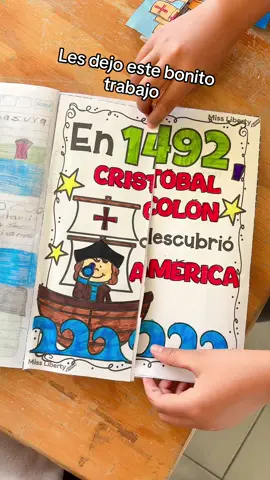 Les dejo este bonito
trabajo
Miss Liberty
En 1492,
CRISTÓBAL
COLÓN
descubrió
AMÉRICA
Miss Liberty
Miss Liberty